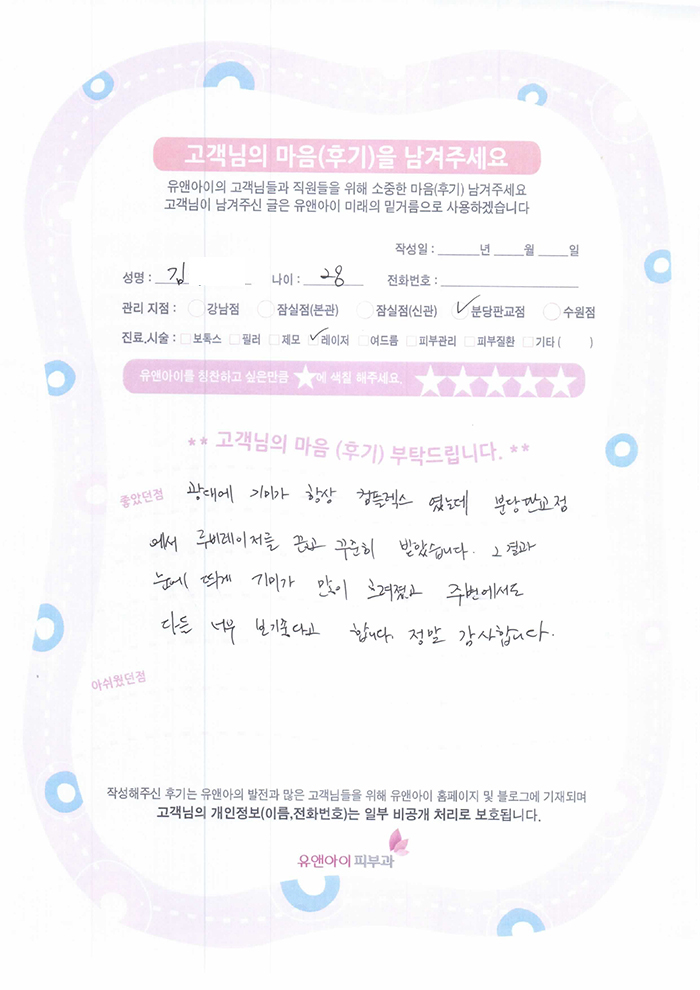 고객님의 마음(후기)을 남겨주세요
유앤아이의 고객님들과 직원들을 위해 소중한 마음(후기) 남겨주세요
고객님이 남겨주신 글은 유앤아이 미래의 밑거름으로 사용하겠습니다
작성일 : ______년 _____월 _____일
성명 : 김 나이 : 28 전화번호 :
관리 지점 : 강남점 잠실점(본관) 잠실점(신관) ✓분당판교점 수원점
진료,시술 : 보톡스 필러 제모 ✓레이저 여드름 피부관리 피부질환 기타 ( )
유앤아이를 칭찬하고 싶은만큼 ★에 색칠 해주세요. ★★★★★
** 고객님의 마음 (후기) 부탁드립니다. **
좋았던점 광대에 기미가 항상 컴플렉스 였는데 분당판교점
에서 루비레이저를 끈고 꾸준히 받았습니다. 그 결과
눈에 띄게 기미가 많이 흐려졌고 주변에서도
다들 너무 보기좋다고 합니다. 정말 감사합니다.
아쉬웠던점
작성해주신 후기는 유앤아의 발전과 많은 고객님들을 위해 유앤아이 홈페이지 및 블로그에 기재되며
고객님의 개인정보(이름,전화번호)는 일부 비공개 처리로 보호됩니다.
유앤아이피부과